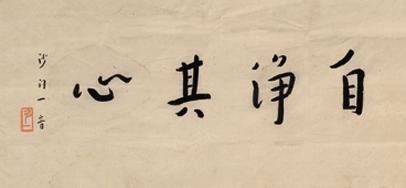 自淨其心
沙門一音